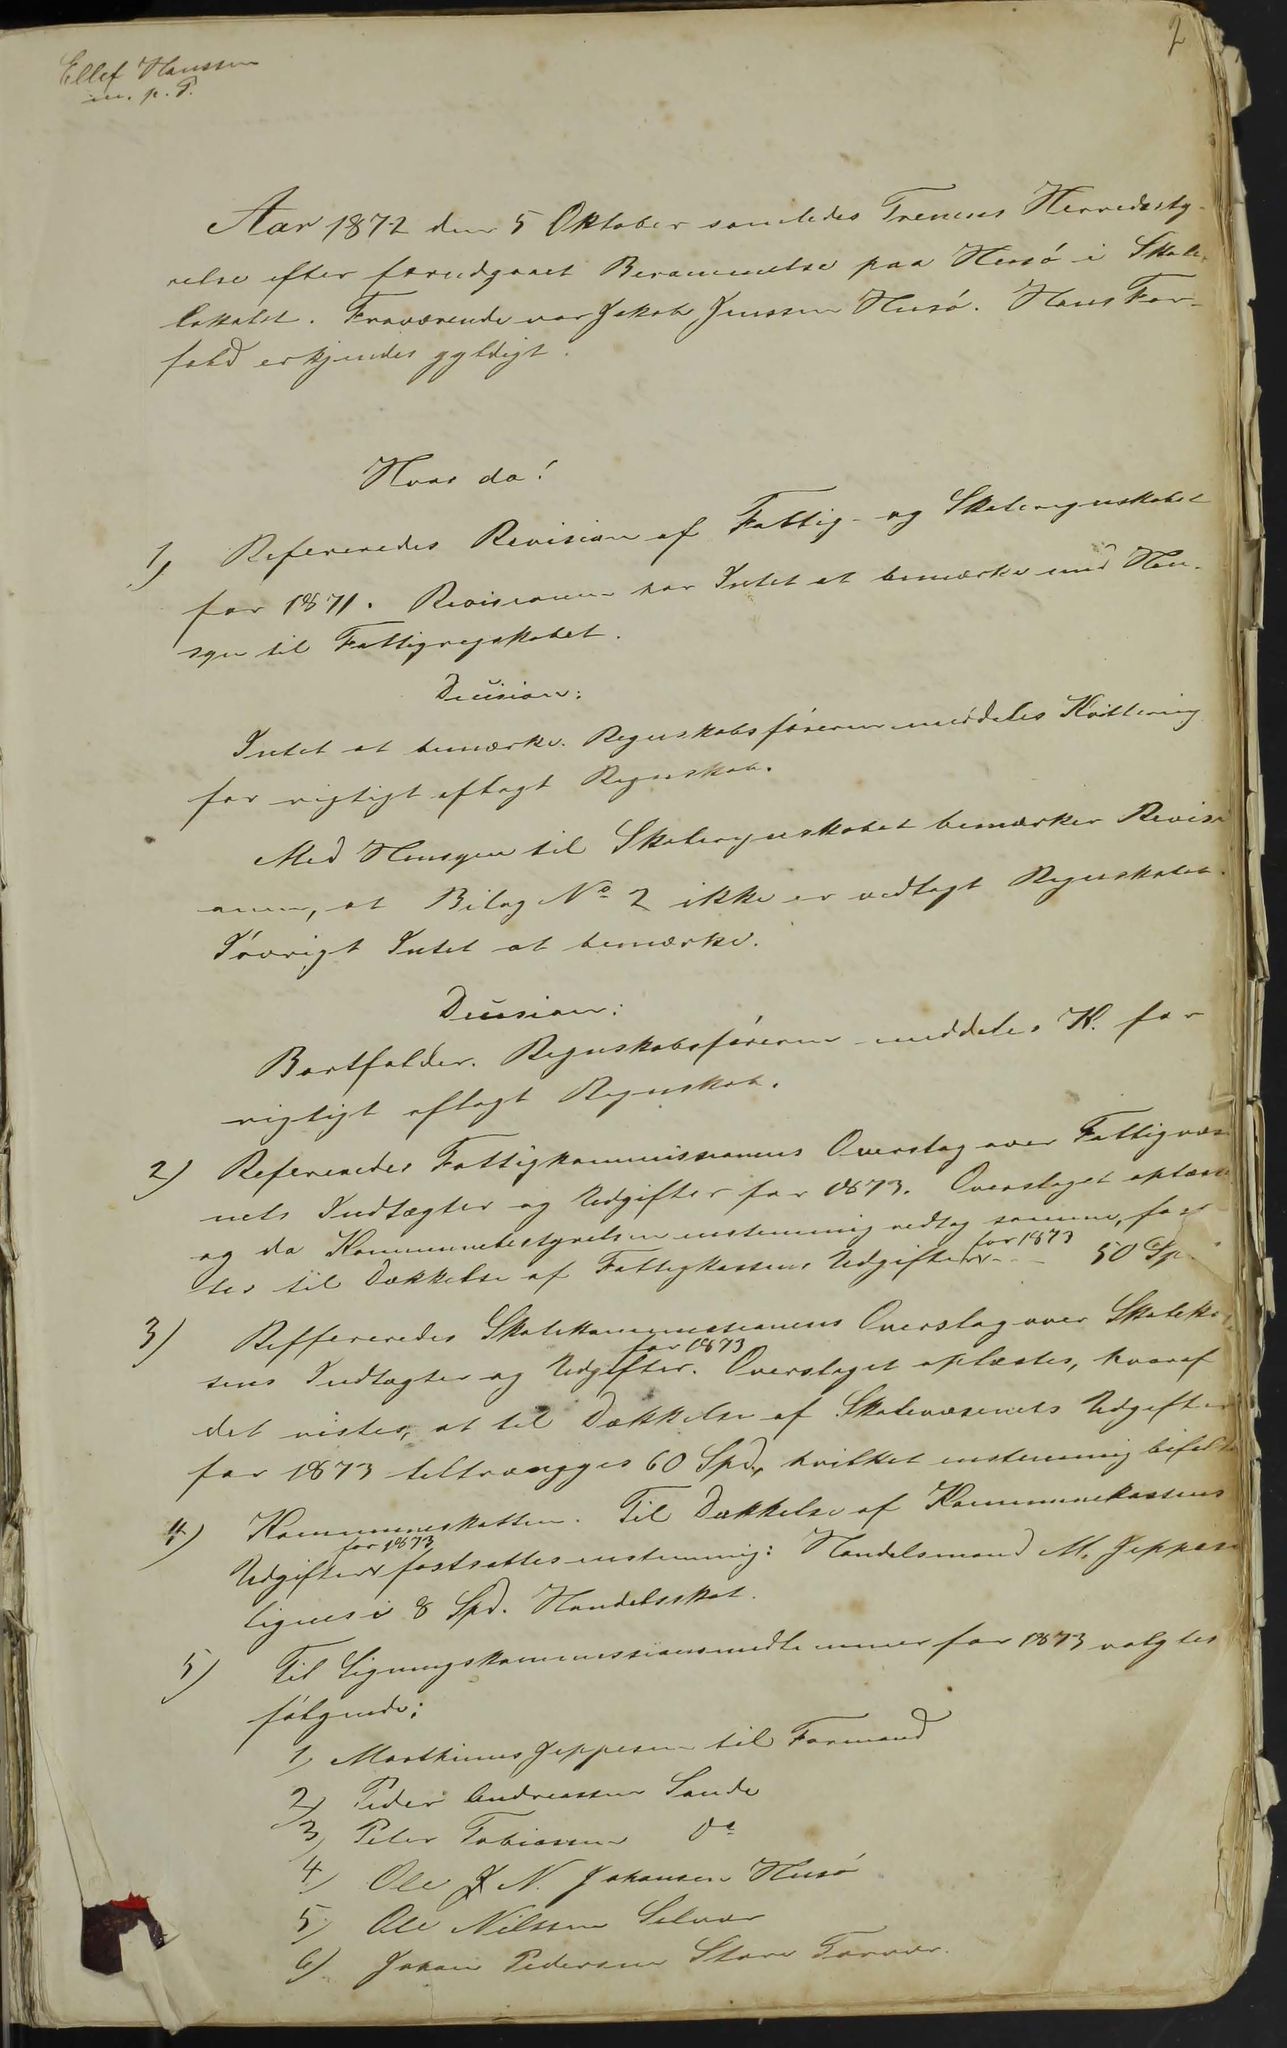 2
Ellef Hanssen
m. p. P.
Aar 1872 den 5 Oktober samledes Trenens Herredsty-
relse efter forudgaaet Berammelse paa Husö i Skole-
lokalet. Fraværende var Jakob Jenssen Husö. Hans For-
fald erkjendes gyldigt.
Hvor da!
1) Refereredes Revision af Fattig- og Skoleregnskabet
for 1871. Revisionen har Intet at bemærke med Hen-
syn til Fattigregskabet.
Decision:
Intet at bemærke. Regnskabsföreren meddeles Kvittering
for rigtigt aflagt Regnskab.
Med Hensyn til Skoleregnskabet bemærker Revisi
onen, at Bilag No 2 ikke er vedlagt Regnskabet.
Iövrigt Intet at bemærke.
Decision:
Bortfalder. Regnskabsföreren meddeles K. for
rigtigt aflagt Regnskab.
2) Refereredes Fattigkommissionens Overslag over Fattigvæse
nets Indtægter og Udgifter for 1873. Overslaget oplæste
og da Kommunebestyrelsen enstemmig vedtog samme, fast
for 1873
tes til Dækkelse af Fattigkassens Udgifter - - - 50 Sp
3) Reffereredes Skolekommissionens Overslag over Skoleka
for 1873
sens Indtægter og Udgifter. Overslaget oplæstes, hvoraf
det vistes, at til Dækkelse af Skolevæsenets Udgifter
for 1873 tiltrængges 60 Spd, hvilket enstemmig bifaldt
4) Kommuneskatten. Til Dækkelse af Kommunekassens
for 1873
Udgifter fastsattes enstemmig: Handelsmand M. Jeppese
lignes i 8 Spd. Handelsskat.
5) Til Ligningskommissionsmedlemmer for 1873 valgtes
fölgende:
1) Marthinus Jeppesen til Formand
2) Peder Andreassen Sande
3) Peter Tobiassen do
4) Ole J N. Johansen Husö
5) Ole Nilssen Selvær
6) Johan Pedersen Store Torvær.